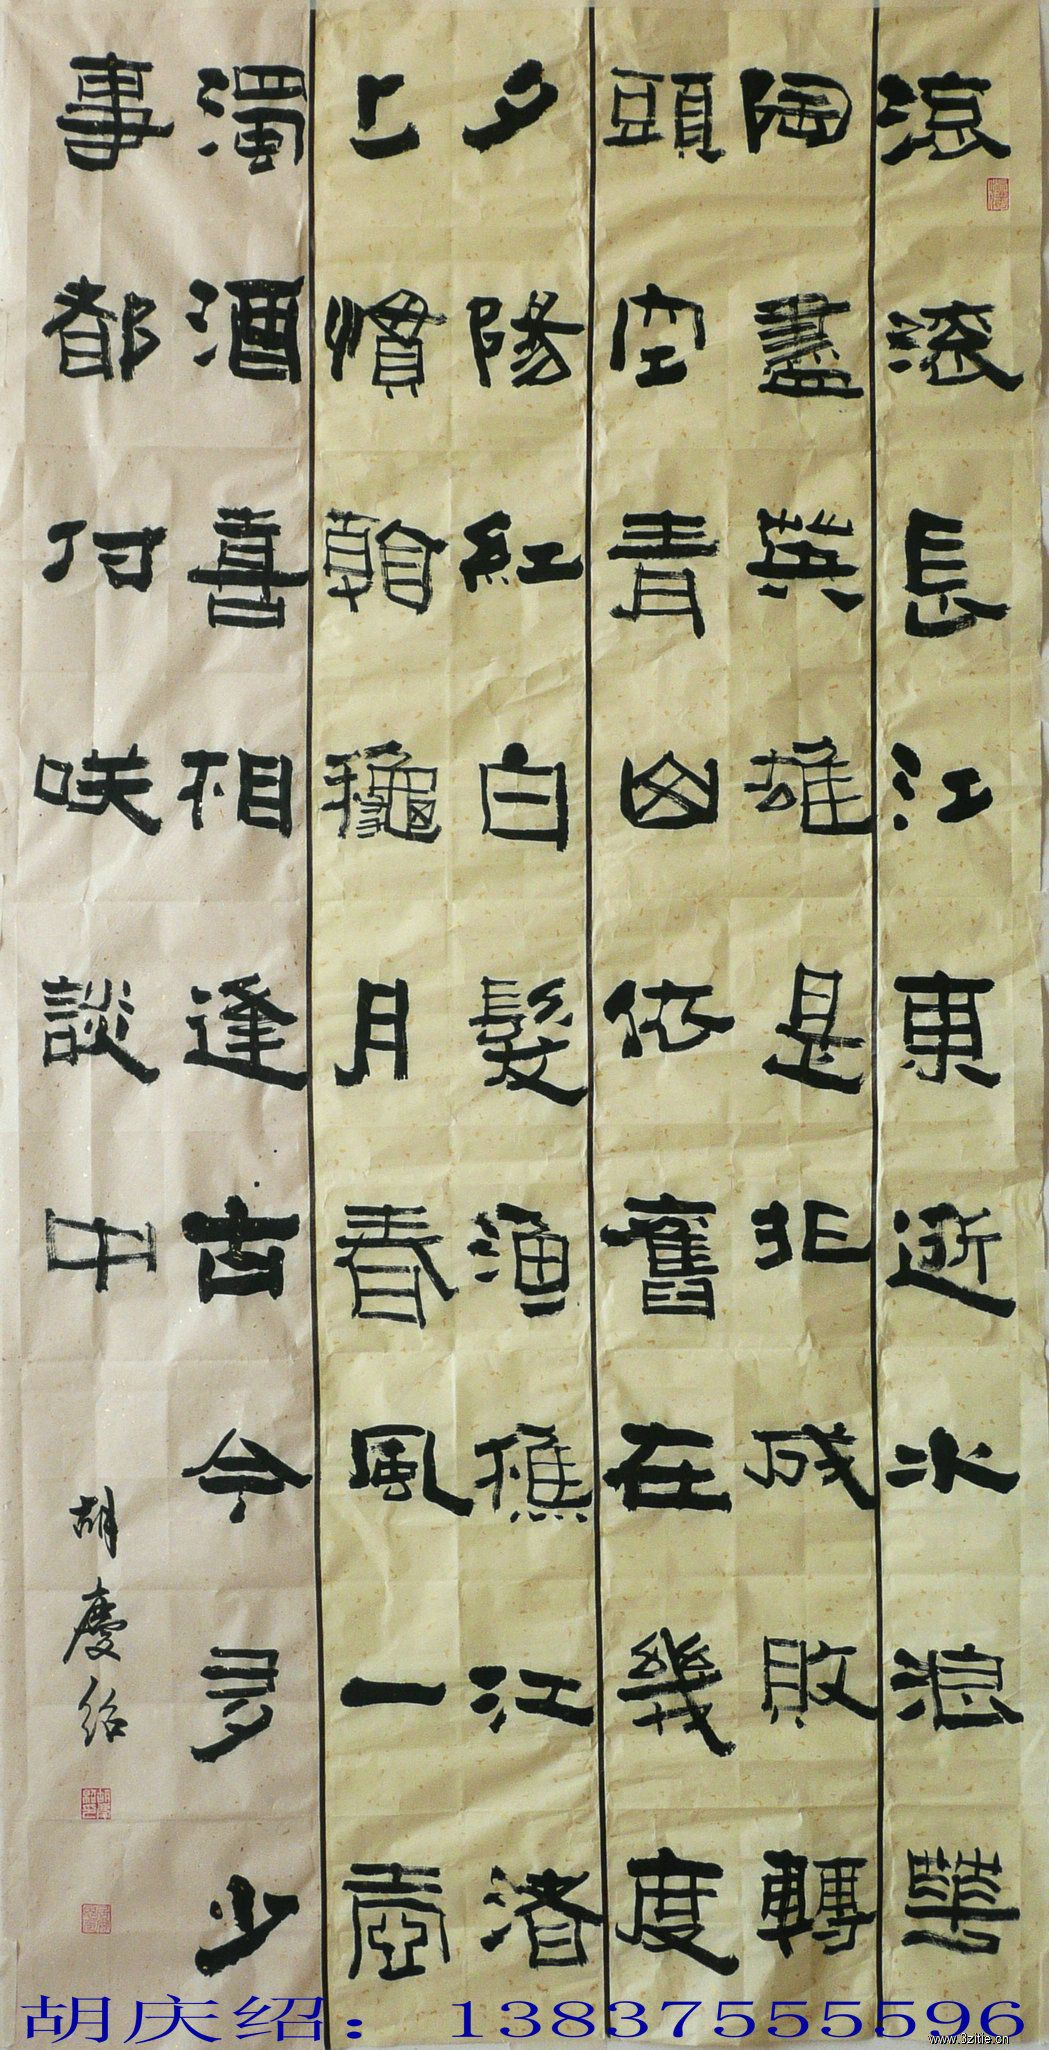 滚滚長江東逝水浪華
陶盡英雄是非成敗轉
頭空青山依舊在幾度
夕陽紅白髮漁樵江渚
上慣看龝月春風一壺
濁酒喜相逢古今多少
事都付咲談中
胡慶紹
胡庆绍：13837555596
www.3zitie.cn